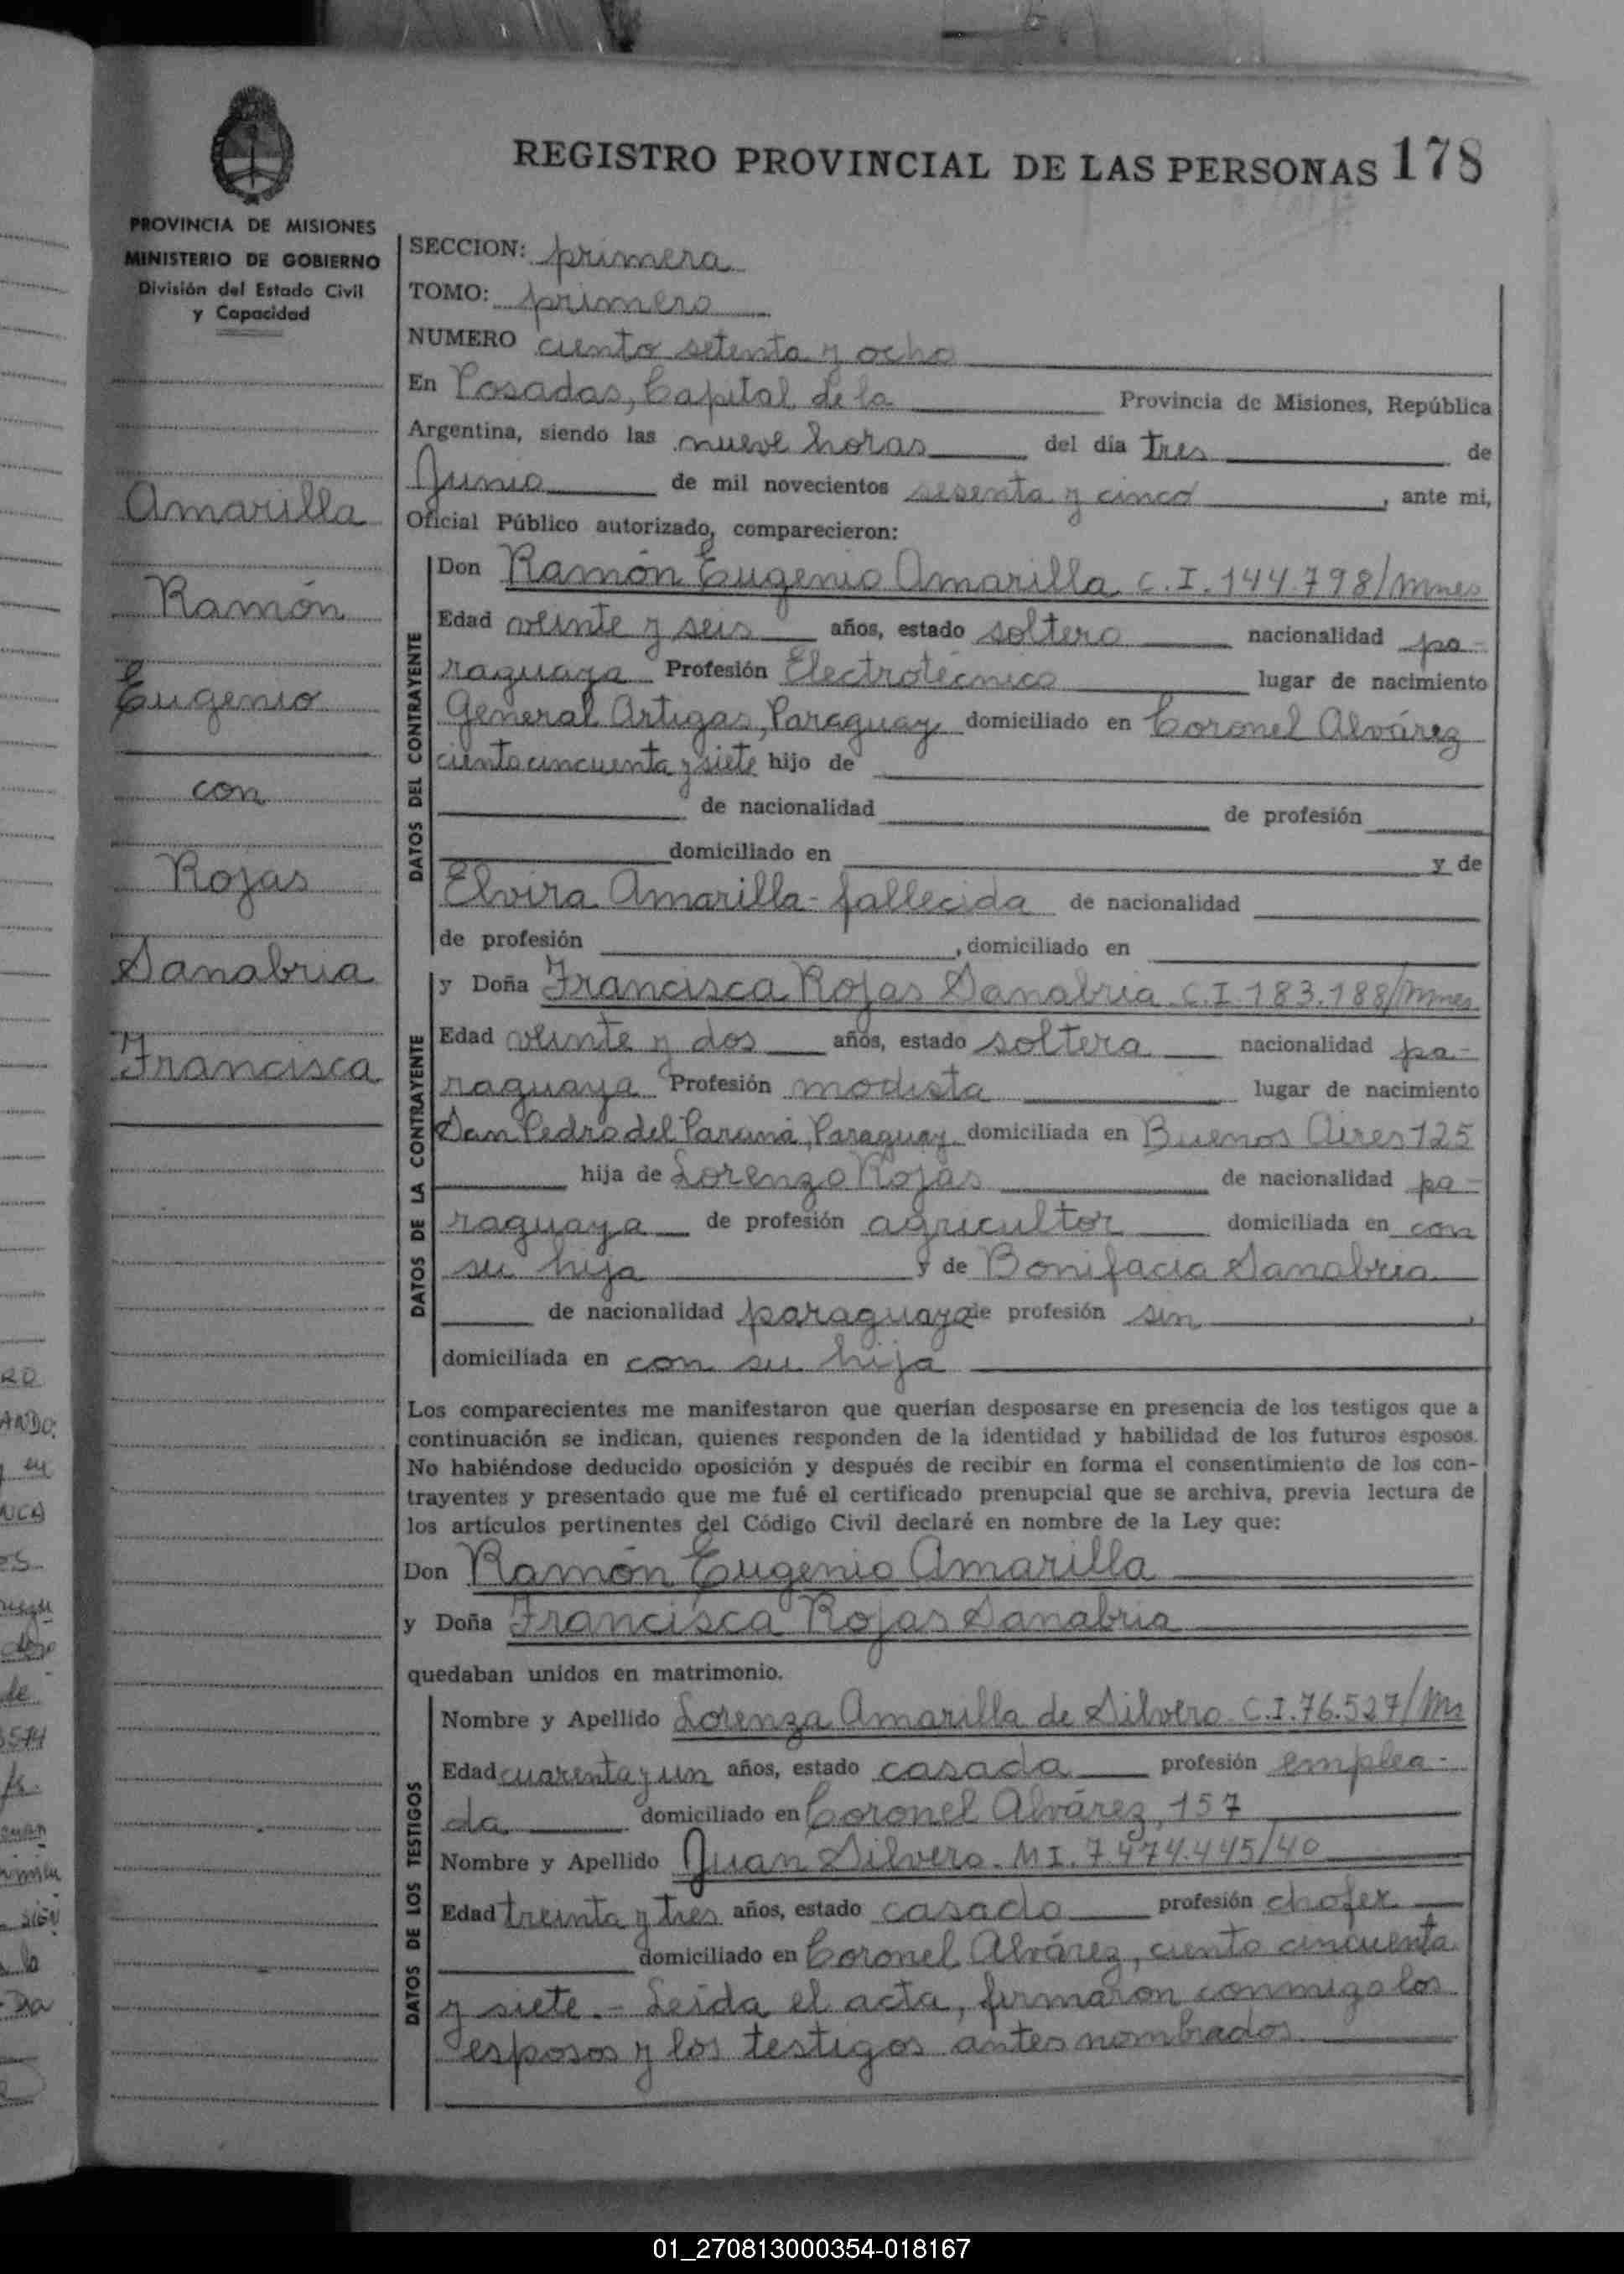 REGISTRO PROVINCIAL DE LAS PERSONAS 178
PROVINCIA DE MISIONES
MINISTERIO DE GOBIERNO
División del Estado Civil
y Capacidad
Amarilla
Ramón
Eugenio
con
Rojas
Sanabria
Francisca
SECCION: primera
TOMO: primero
NUMERO ciento setenta y ocho
En Posadas, Capital de la Provincia de Misiones, República
Argentina, siendo las nueve horas del día tres de
Junio de mil novecientos sesenta y cinco, ante mi,
Oficial Público autorizado, comparecieron:
DATOS DEL CONTRAYENTE
Don Ramón Eugenio Amarilla C.I. 144.798/Mnes
Edad veinte y seis años, estado soltero nacionalidad pa-
raguaya Profesión Electrotécnico lugar de nacimiento
General Artigas, Paraguay domiciliado en Coronel Alvárez
ciento cincuenta y siete hijo de
de nacionalidad de profesión
domiciliado en y de
Elvira Amarilla - fallecida de nacionalidad
de profesión , domiciliado en
DATOS DE LA CONTRAYENTE
y Doña Francisca Rojas Sanabria C.I 183.188/Mnes
Edad veinte y dos años, estado soltera nacionalidad pa-
raguaya Profesión modista lugar de nacimiento
San Pedro del Paraná, Paraguay domiciliada en Buenos Aires 125
hija de Lorenzo Rojas de nacionalidad pa-
raguaya de profesión agricultor domiciliada en con
su hija y de Bonifacia Sanabria
de nacionalidad paraguaya de profesión sin ,
domiciliada en con su hija
Los comparecientes me manifestaron que querían desposarse en presencia de los testigos que a
continuación se indican, quienes responden de la identidad y habilidad de los futuros esposos.
No habiéndose deducido oposición y después de recibir en forma el consentimiento de los con-
trayentes y presentado que me fué el certificado prenupcial que se archiva, previa lectura de
los artículos pertinentes del Código Civil declaré en nombre de la Ley que:
Don Ramón Eugenio Amarilla
y Doña Francisca Rojas Sanabria
quedaban unidos en matrimonio.
DATOS DE LOS TESTIGOS
Nombre y Apellido Lorenza Amarilla de Silvero C.I. 76.527/Ms
Edad cuarenta y un años, estado casada profesión emplea-
da domiciliado en Coronel Alvárez, 157
Nombre y Apellido Juan Silvero - M I. 7.474.445/40
Edad treinta y tres años, estado casado profesión chofer
domiciliado en Coronel Alvárez, ciento cincuenta
y siete. - Leída el acta, firmaron conmigo los
esposos y los testigos antes nombrados
01_270813000354-018167